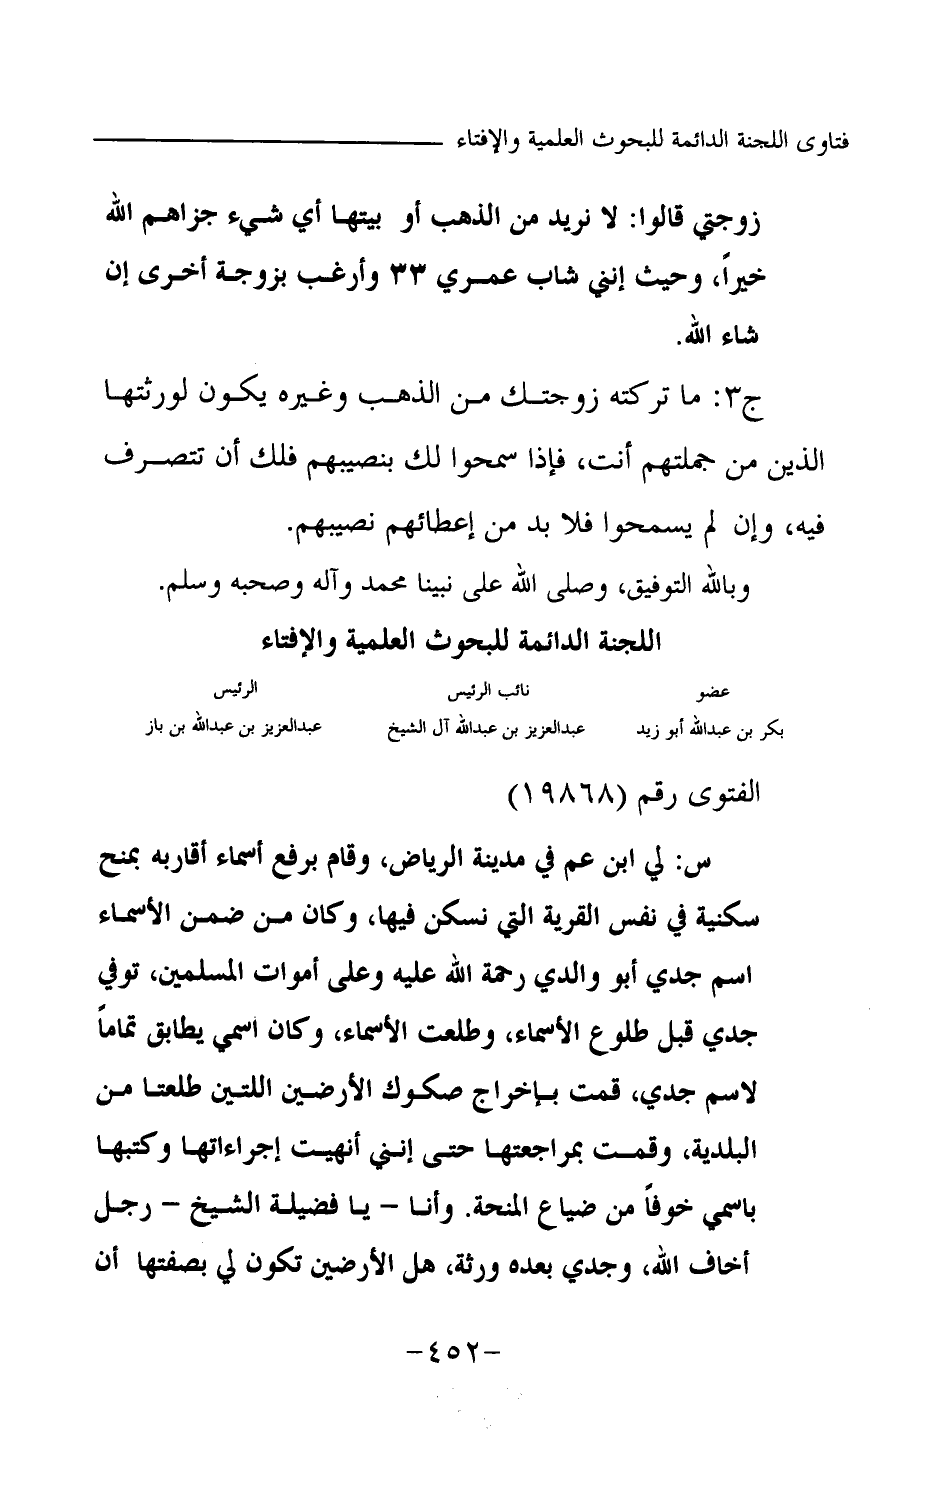 فتاوى اللجنة الدائمة للبحوث العلمية والإفتاء
زوجتي قالوا: لا نريد من الذهب أو بيتها أي شيء جزاهم الله
خيراً، وحيث إنني شاب عمري ٣٣ وأرغب بزوجة أخرى إن
شاء الله.
ج٣: ما تركته زوجتك من الذهب وغيره يكون لورثتها
الذين من جملتهم أنت، فإذا سمحوا لك بنصيبهم فلك أن تتصرف
فيه، وإن لم يسمحوا فلا بد من إعطائهم نصيبهم.
وبالله التوفيق، وصلى الله على نبينا محمد وآله وصحبه وسلم.
اللجنة الدائمة للبحوث العلمية والإفتاء
عضو نائب الرئيس الرئيس
بكر بن عبدالله أبو زيد عبدالعزيز بن عبدالله آل الشيخ عبدالعزيز بن عبدالله بن باز
الفتوى رقم (١٩٨٦٨)
س: لي ابن عم في مدينة الرياض، وقام برفع أسماء أقاربه بمنح
سكنية في نفس القرية التي نسكن فيها، وكان من ضمن الأسماء
اسم جدي أبو والدي رحمة الله عليه وعلى أموات المسلمين، توفي
جدي قبل طلوع الأسماء، وطلعت الأسماء، وكان اسمي يطابق تماماً
لاسم جدي، قمت بإخراج صكوك الأرضين اللتين طلعتا من
البلدية، وقمت بمراجعتها حتى إنني أنهيت إجراءاتها وكتبها
باسمي خوفاً من ضياع المنحة. وأنا - يا فضيلة الشيخ - رجل
أخاف الله، وجدي بعده ورثة، هل الأرضين تكون لي بصفتها أن
-٤٥٢-